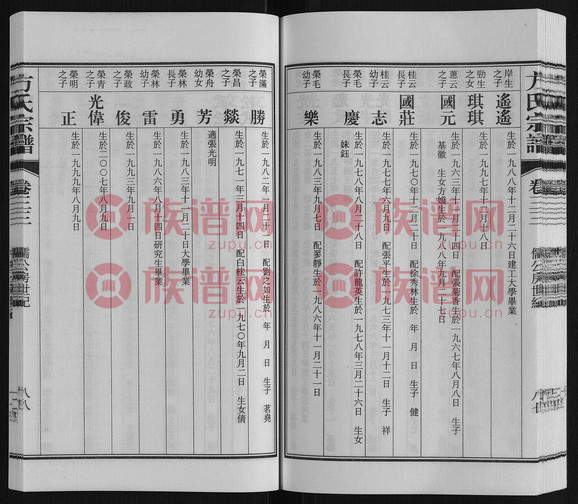 方氏宗譜
卷三三
岸生之子
遙遙
生於一九八八年十二月二十六日建工大學畢業
勁生之女
琪琪
蕙云之子
國元
基徽
配張菊香生於一九六七年八月八日 生子
生女方嬌生於一九八八年九月二十七日
桂云長子
國莊
生於一九七〇年十二月二十日 配徐秀林生於 年 月 日 生子 健
桂云幼子
志
生於一九七七年六月九日 配張平生於一九七三年十一月十二日 生子 祥
榮毛長子
慶
生於一九七八年二月二十八日 配許龍英生於一九七八年三月二十六日 生女
妹鈺
榮毛幼子
樂
生於一九八三年十一月二十日 配廖靜生於一九八六年十一月二十一日
榮滿之子
勝
年 月 日 生子 茗堯
榮昌之子
燚
生於一九七一年三月十四日 配白桂云生於一九七〇年九月二日 生女倩
榮舟幼女
芳
適張光明
榮林長子
勇
生於一九八三年十一月二十日大學畢業
榮林幼子
雷
生於一九八六年八月十四日研究生畢業
榮政之子
俊
生於一九九三年九月一日
榮青之子
光偉
生於二〇〇七年八月九日
榮明之子
正
生於一九九九年八月九日
方氏宗譜
卷三三
儒公房世紀
八八
族谱网
zupu.cn
族谱网
zupu.cn
族谱网
zupu.cn
族谱网
zupu.cn